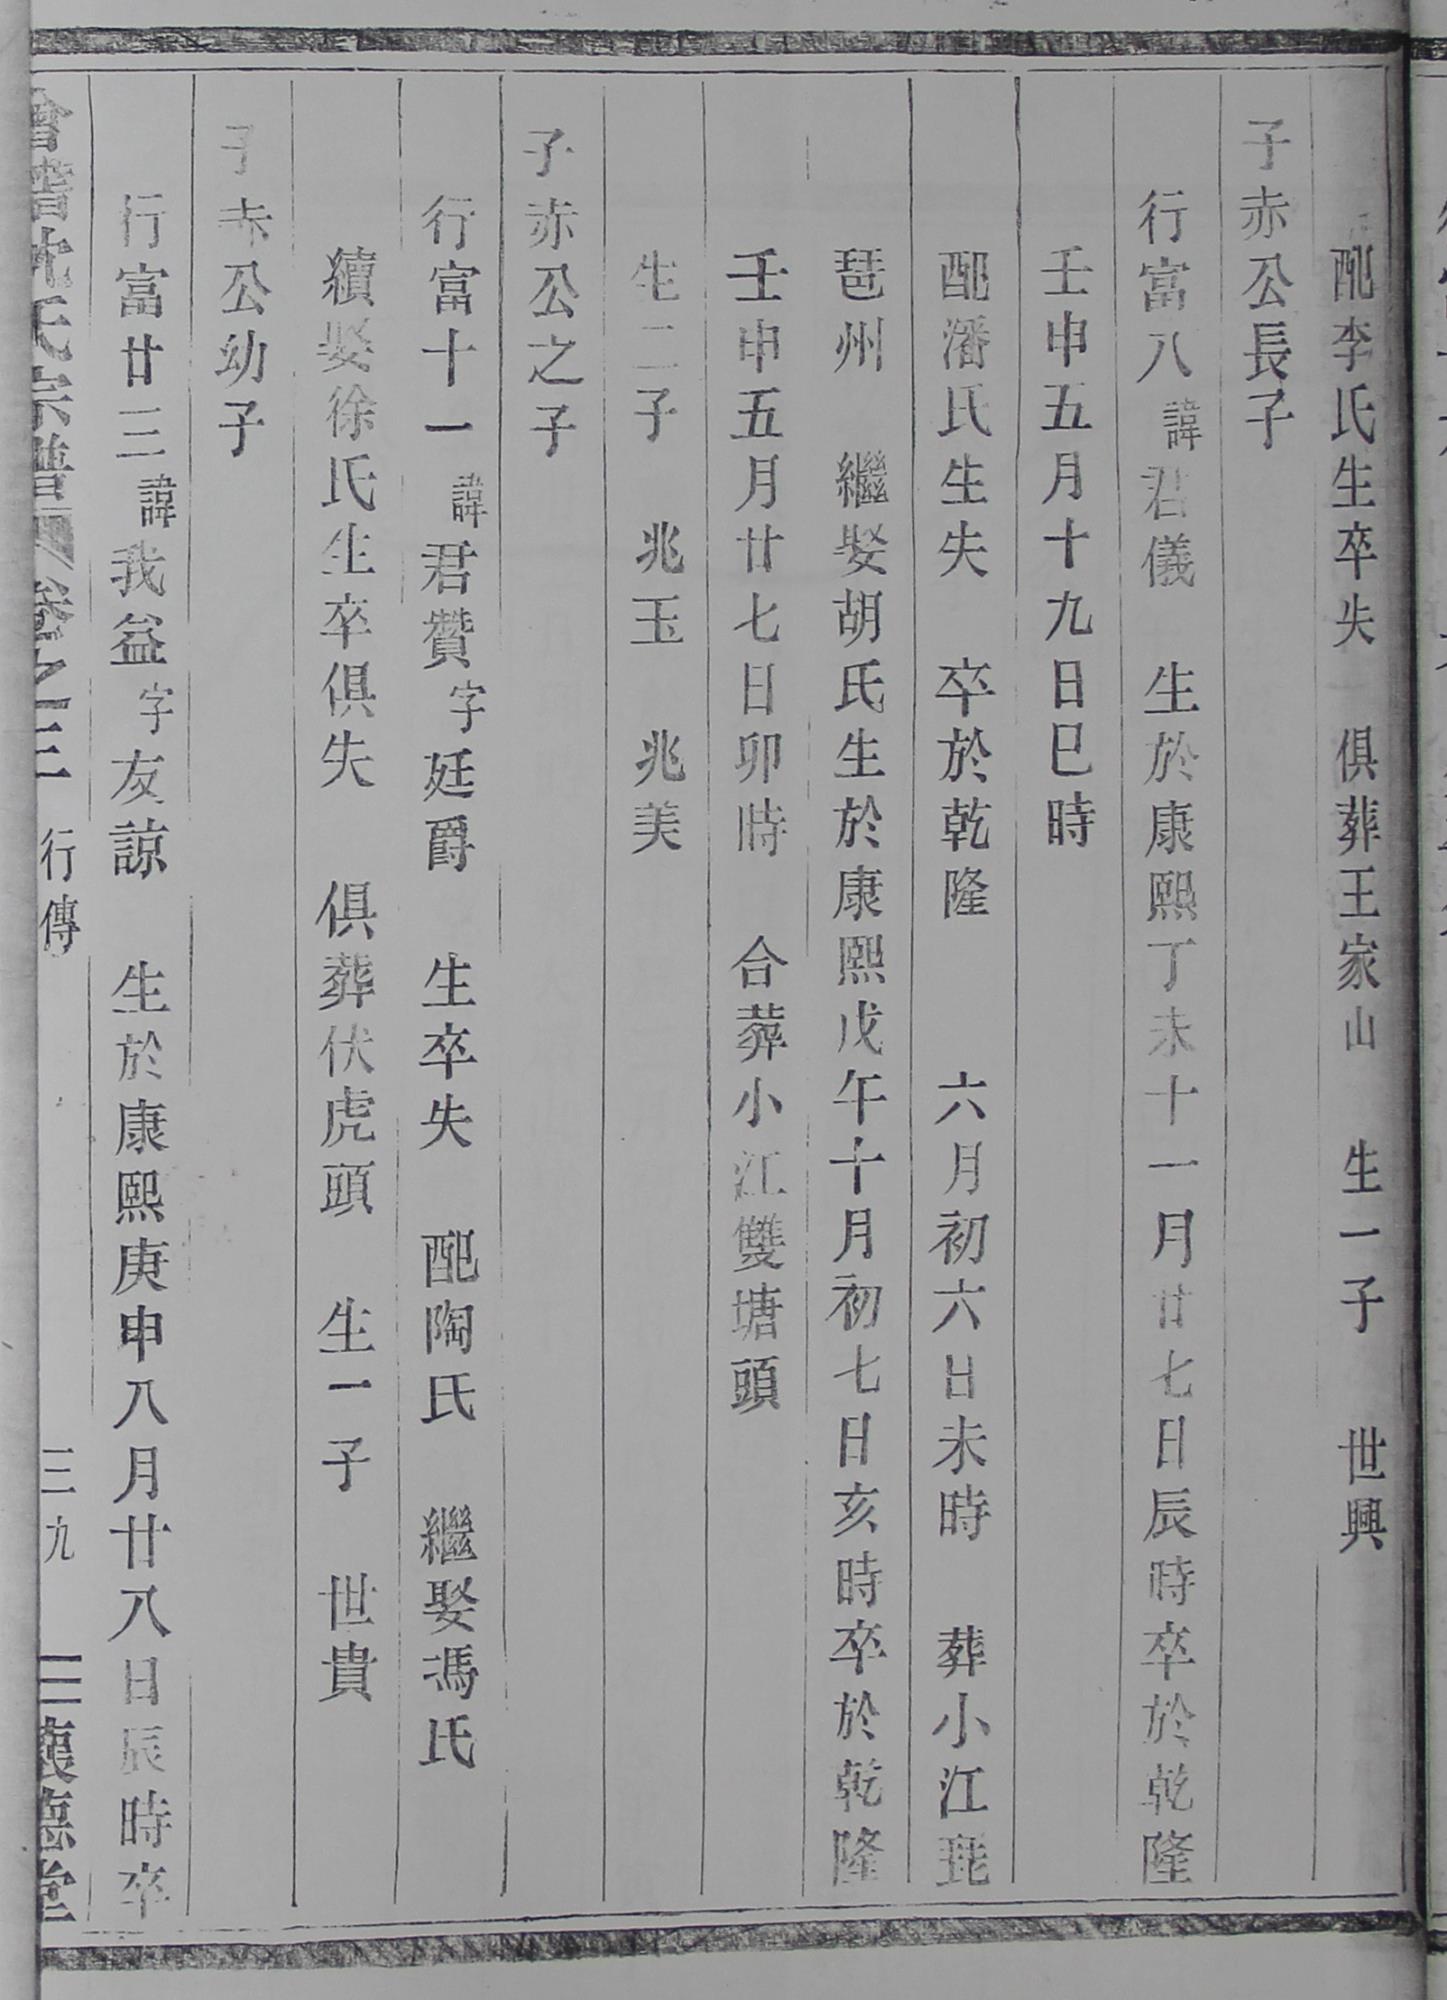 配李氏生卒失 俱葬王家山 生一子 世興
子赤公長子
行富八諱君儀 生於康熙丁未十一月廿七日辰時卒於乾隆
壬申五月十九日巳時
配潘氏生失 卒於乾隆 六月初六日未時 葬小江琵
琶州 繼娶胡氏生於康熙戊午十月初七日亥時卒於乾隆
壬申五月廿七日卯時 合葬小江雙塘頭
生二子 兆玉 兆美
子赤公之子
行富十一諱君贊字廷爵 生卒失 配陶氏 繼娶馮氏
續娶徐氏生卒俱失 俱葬伏虎頭 生一子 世貴
子赤公幼子
行富廿三諱我益字友諒 生於康熙庚申八月廿八日辰時卒
會稽沈氏宗譜 卷之三 行傳 三九 懷德堂